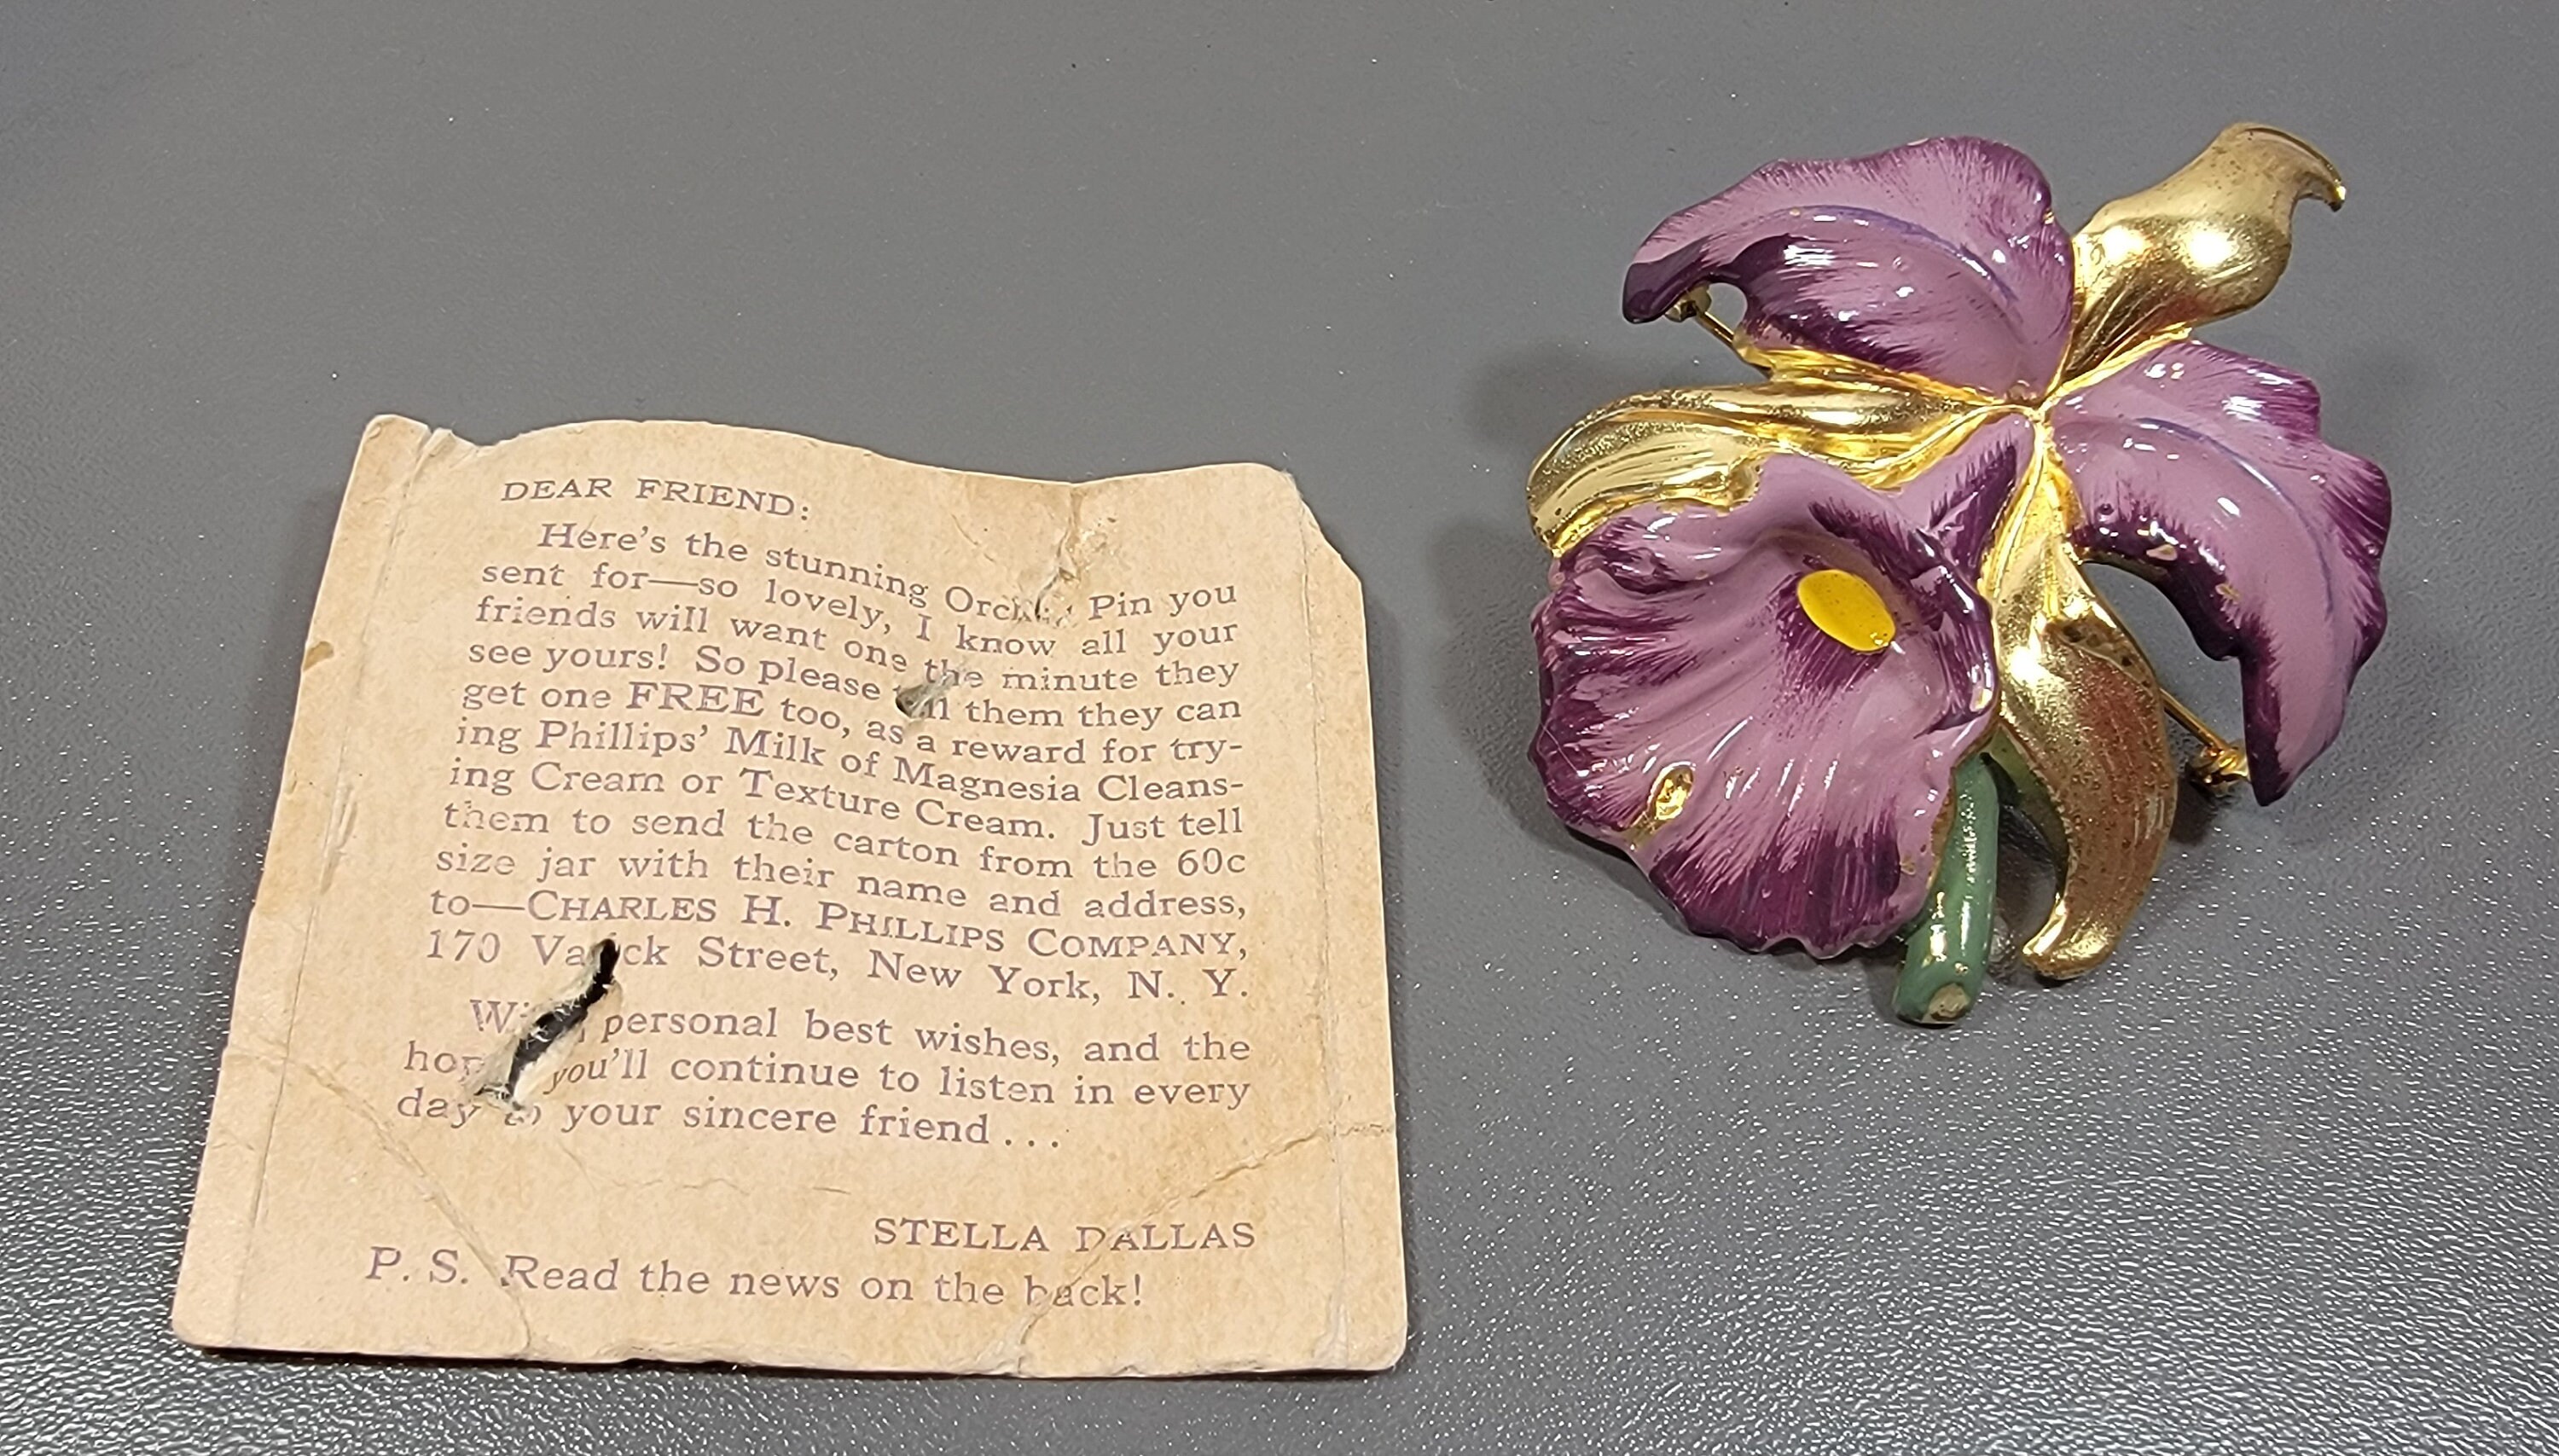 DEAR FRIEND:
Here's the stunning Orchid Pin you
sent for—so lovely, I know all your
friends will want one the minute they
see yours! So please tell them they can
get one FREE too, as a reward for try-
ing Phillips' Milk of Magnesia Cleans-
ing Cream or Texture Cream. Just tell
them to send the carton from the 60c
size jar with their name and address,
to—CHARLES H. PHILLIPS COMPANY,
170 Varick Street, New York, N. Y.
With personal best wishes, and the
hope you'll continue to listen in every
day to your sincere friend...
STELLA DALLAS
P. S. Read the news on the back!